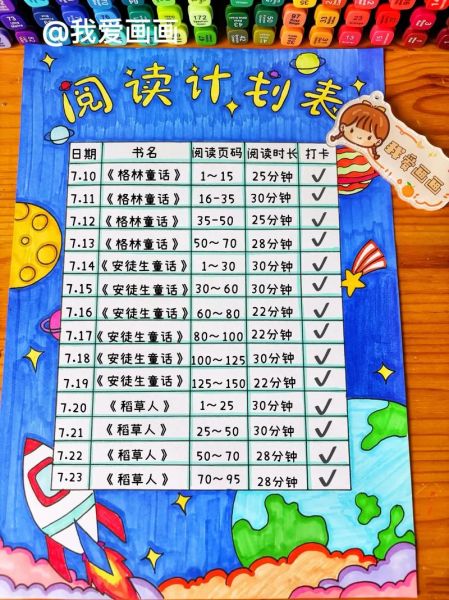 @我爱画画
阅读计划表
我爱画画
日期 书名 阅读页码 阅读时长 打卡
7.10 《格林童话》 1～15 25分钟 ✓
7.11 《格林童话》 16-35 30分钟 ✓
7.12 《格林童话》 35-50 25分钟 ✓
7.13 《格林童话》 50～70 28分钟 ✓
7.14 《安徒生童话》 1～30 30分钟 ✓
7.15 《安徒生童话》 30～60 30分钟 ✓
7.16 《安徒生童话》 60～80 22分钟 ✓
7.17 《安徒生童话》 80～100 22分钟 ✓
7.18 《安徒生童话》 100～125 30分钟 ✓
7.19 《安徒生童话》 125～150 22分钟 ✓
7.20 《稻草人》 1～25 30分钟 ✓
7.21 《稻草人》 25～50 30分钟 ✓
7.22 《稻草人》 50～70 28分钟 ✓
7.23 《稻草人》 70～95 28分钟 ✓